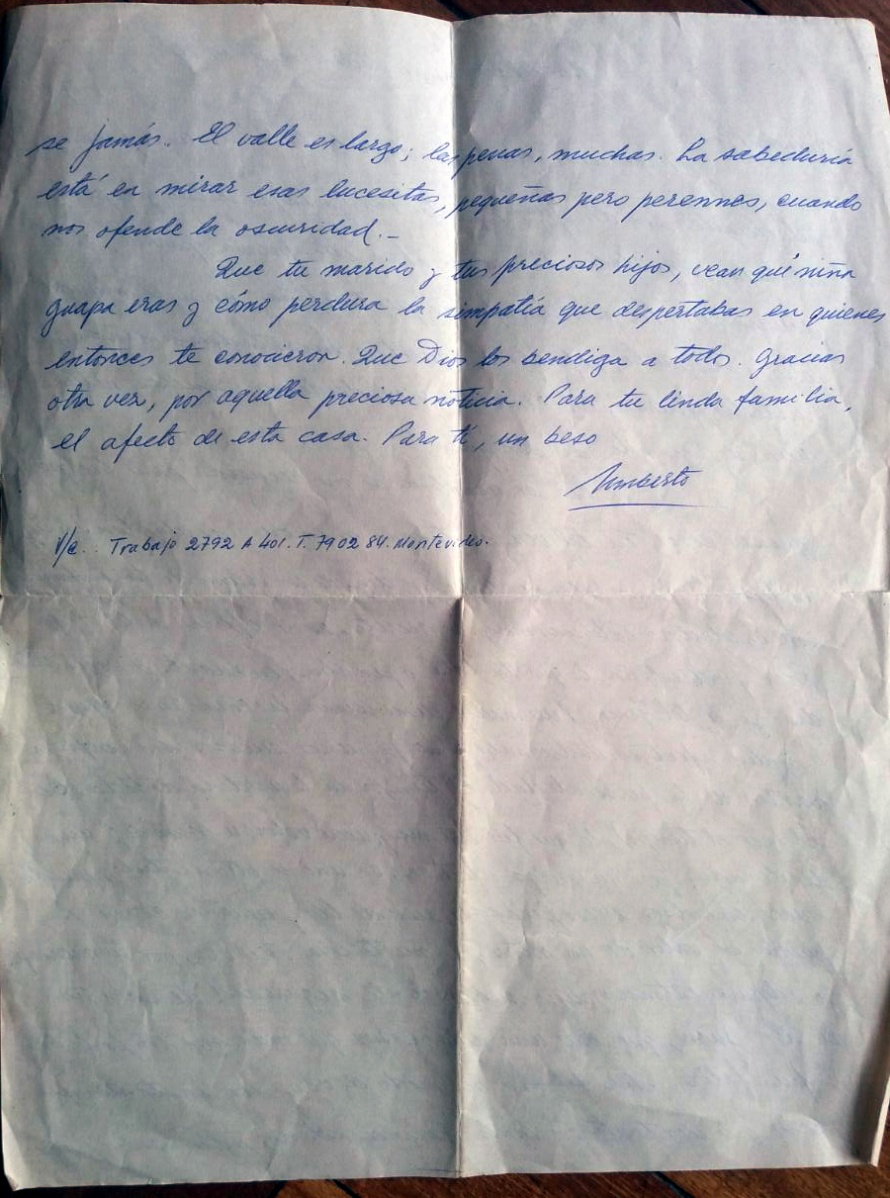 se jamás. El valle es largo; las penas, muchas. La sabeduría
está en mirar esas lucesitas, pequeñas pero perennes, cuando
nos ofende la oscuridad._
Que tu marido y tus preciosos hijos, vean qué niña
guapa eras y cómo perdura la simpatía que despertabas en quienes
entonces te conocieron. Que Dios los bendiga a todos. Gracias
otra vez, por aquella preciosa noticia. Para tu linda familia,
el afecto de esta casa. Para tí, un beso
Umberto
Trabajo 2792 A 401. T. 7902 84. Montevideo.